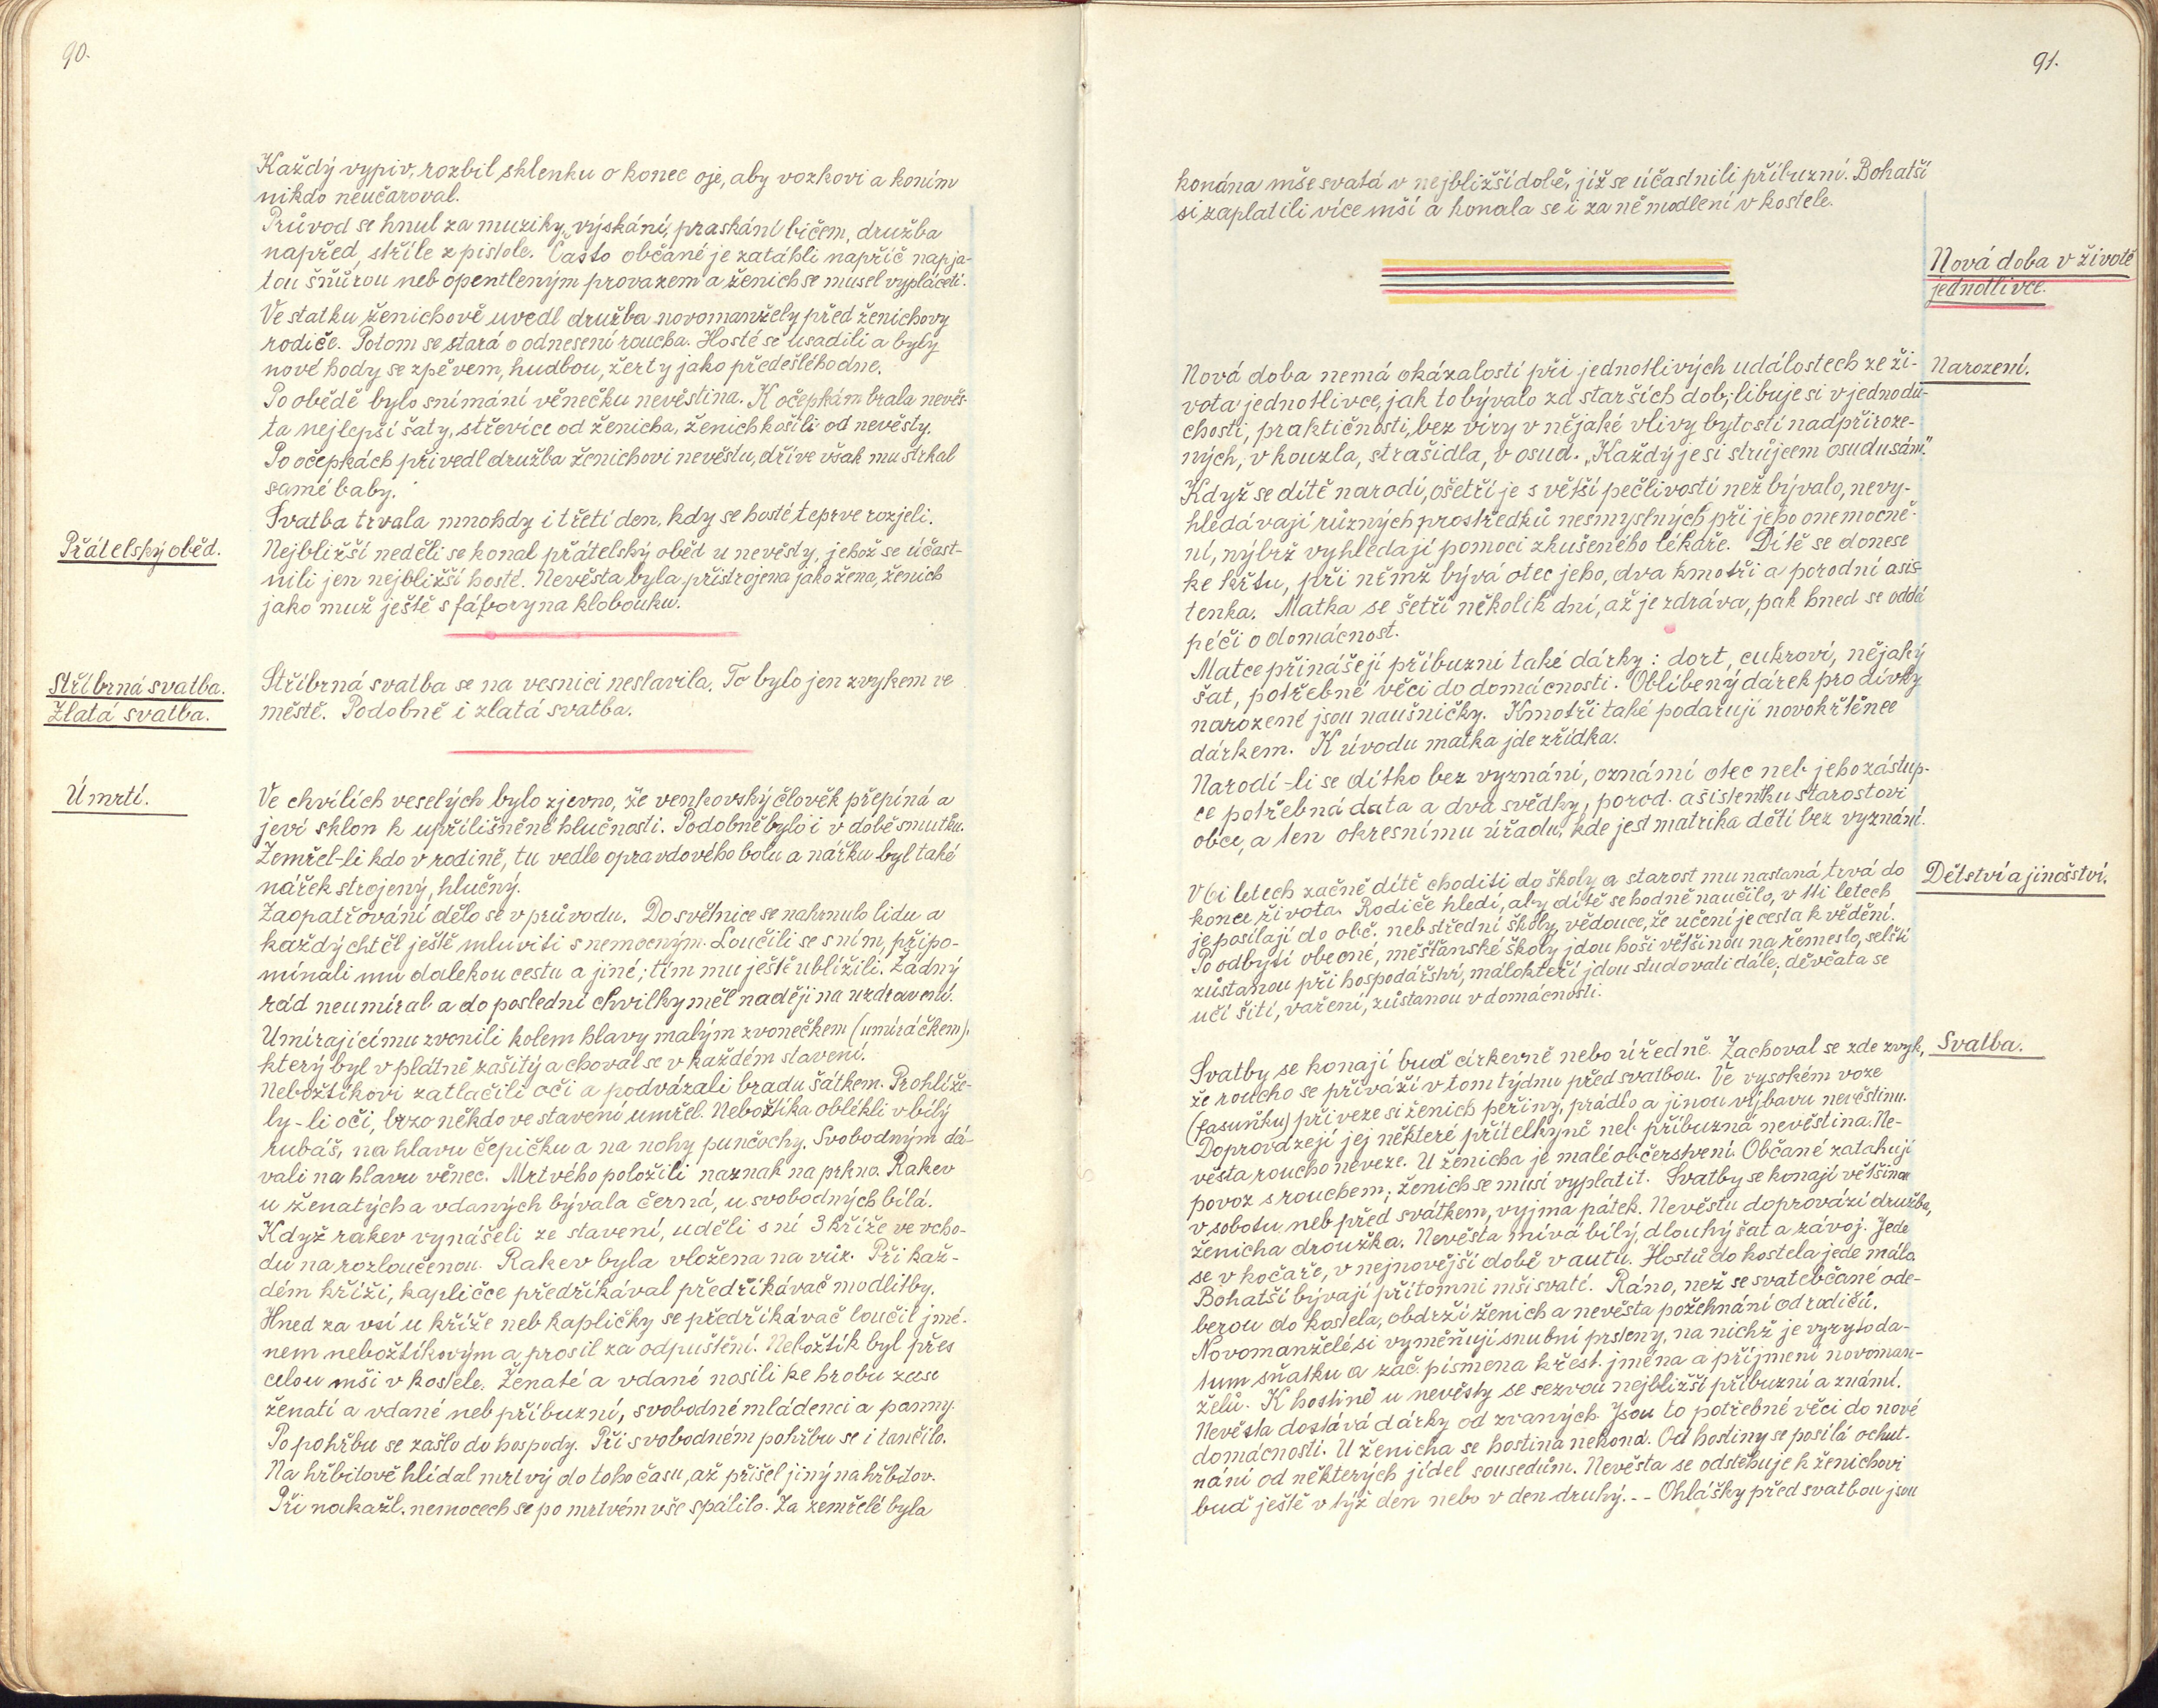 90.
Každý vypiv, rozbil sklenku o konec oje, aby vozkovi a koním
nikdo neučaroval.
Průvod se hnul za muziky, výskání, praskání bičem, družba
napřed, stříle z pistole. Často občané je zatáhli napříč napja-
tou šňůrou neb opentleným provazem a ženich se musel vypláceti.
Ve statku ženichově uvedl družba novomanžely před ženichovy
rodiče. Potom se stará o odnesení roucha. Hosté se usadili a byly
nové hody se zpěvem, hudbou, žerty jako předešlého dne.
Po obědě bylo snímání věnečku nevěstina. K očepkám brala nevěs-
ta nejlepší šaty, střevíce od ženicha, ženich košili od nevěsty.
Po očepkách přivedl družba ženichovi nevěstu, dříve však mu strkal
samé baby.
Svatba trvala mnohdy i třetí den, kdy se hosté teprve rozjeli.
Přátelský oběd.
Nejbližší neděli se konal přátelský oběd u nevěsty, jehož se účast-
nili jen nejbližší hosté. Nevěsta byla přistrojena jako žena, ženich
jako muž ještě s fábory na klobouku.
Stříbrná svatba.
Zlatá svatba.
Stříbrná svatba se na vesnici neslavila. To bylo jen zvykem ve
městě. Podobně i zlatá svatba.
Úmrtí.
Ve chvílích veselých bylo zjevno, že venkovský člověk přepíná a
jeví sklon k upřílišněné hlučnosti. Podobně bylo i v době smutku.
Zemřel-li kdo v rodině, tu vedle opravdového bolu a nářku byl také
nářek strojený, hlučný.
Zaopatřování dělo se v průvodu. Do světnice se nahrnulo lidu a
každý chtěl ještě mluviti s nemocným. Loučili se s ním, připo-
mínali mu dalekou cestu a jiné; tím mu ještě ublížili. Žádný
rád neumíral a do poslední chvilky měl naději na uzdravení.
Umírajícímu zvonili kolem hlavy malým zvonečkem (umíráčkem),
který byl v plátně zašitý a choval se v každém stavení.
Nebožtíkovi zatlačili oči a podvázali bradu šátkem. Prohlíže-
ly-li oči, brzo někdo ve stavení umřel. Nebožtíka oblékli v bílý
rubáš, na hlavu čepičku a na nohy punčochy. Svobodným dá-
vali na hlavu věnec. Mrtvého položili naznak na prkno. Rakev
u ženatých a vdaných bývala černá, u svobodných bílá.
Když rakev vynášeli ze stavení, uděli s ní 3 kříže ve vcho-
du na rozloučenou. Rakev byla vložena na vůz. Při kaž-
dém kříži, kapličce předříkával předříkávač modlitby.
Hned za vsí u kříže neb kapličky se předříkávač loučil jmé-
nem nebožtíkovým a prosil za odpuštění. Nebožtík byl přes
celou mši v kostele. Ženaté a vdané nosili ke hrobu zase
ženatí a vdané neb příbuzní, svobodné mládenci a panny.
Po pohřbu se zašlo do hospody. Při svobodném pohřbu se i tančilo.
Na hřbitově hlídal mrtvý do toho času, až přišel jiný na hřbitov.
Při nakažl. nemocech se po mrtvém vše spálilo. Za zemřelé byla
91.
konána mše svatá v nejbližší době, již se účastnili příbuzní. Bohatší
si zaplatili více mší a konala se i za ně modlení v kostele.
Nová doba v životě
jednotlivce.
Narození.
Nová doba nemá okázalostí při jednotlivých událostech ze ži-
vota jednotlivce, jak to bývalo za starších dob; libuje si v jednodu-
chosti, praktičnosti, bez víry v nějaké vlivy bytostí nadpřiroze-
ných, v kouzla, strašidla, v osud. „Každý je si strůjcem osudu sám".
Když se dítě narodí, ošetří je s větší pečlivostí než bývalo, nevy-
hledávají různých prostředků nesmyslných při jeho onemocně-
ní, nýbrž vyhledají pomoci zkušeného lékaře. Dítě se donese
ke křtu, při němž bývá otec jeho, dva kmotři a porodní asis-
tenka. Matka se šetří několik dní, až je zdráva, pak hned se oddá
péči o domácnost.
Matce přinášejí příbuzní také dárky: dort, cukroví, nějaký
šat, potřebné věci do domácnosti. Oblíbený dárek pro dívky
narozené jsou naušničky. Kmotři také podarují novokřtěnce
dárkem. K úvodu matka jde zřídka.
Narodí-li se dítko bez vyznání, oznámí otec neb jeho zástup-
ce potřebná data a dva svědky, porod. asistentku starostovi
obce, a ten okresnímu úřadu, kde jest matrika dětí bez vyznání.
Dětství a jinošství.
V 6i letech začně dítě choditi do školy a starost mu nastaná trvá do
konce života. Rodiče hledí, aby dítě se hodně naučilo, v 11i letech
je posílají do obč. neb střední školy, vědouce, že učení je cesta k vědění.
Po odbytí obecné, měšťanské školy jdou hoši většinou na řemeslo, selští
zůstanou při hospodářství, málokteří jdou studovati dále; děvčata se
učí šití, vaření, zůstanou v domácnosti.
Svatba.
Svatby se konají buď církevně nebo úředně. Zachoval se zde zvyk,
že roucho se přiváží v tom týdnu před svatbou. Ve vysokém voze
(fasuňku) přiveze si ženich peřiny, prádlo a jinou výbavu nevěstinu.
Doprovázejí jej některé přítelkyně neb příbuzná nevěstina. Ne-
věsta roucho neveze. U ženicha je malé občerstvení. Občané zatahují
povoz s rouchem; ženich se musí vyplatit. Svatby se konají většinou
v sobotu neb před svátkem, vyjma pátek. Nevěstu doprovází družba,
ženicha droužka. Nevěsta mívá bílý, dlouhý šat a závoj. Jede
se v kočaře, v nejnovější době v autu. Hostů do kostela jede málo.
Bohatší bývají přítomni mši svaté. Ráno, než se svatebčané ode-
berou do kostela, obdrží ženich a nevěsta požehnání od rodičů.
Novomanželé si vyměňují snubní prsteny, na nichž je vyryto da-
tum sňatku a zač. písmena křest. jména a příjmení novoman-
želů. K hostině u nevěsty se sezvou nejbližší příbuzní a známí.
Nevěsta dostává dárky od zvaných. Jsou to potřebné věci do nové
domácnosti. U ženicha se hostina nekoná. Od hostiny se posílá ochut-
nání od některých jídel sousedům. Nevěsta se odstěhuje k ženichovi
buď ještě v týž den nebo v den druhý. - - Ohlášky před svatbou jsou